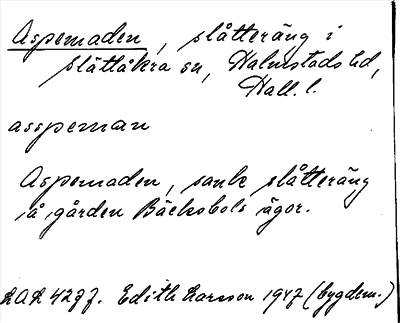 Aspemaden, slåtteräng i
Slättåkra sn, Halmstads hd,
Hall. l.
asspeman
Aspemaden, sank slåtteräng
å gården Bäcksbols ägor.
Edith Larsson 1947 (bygdem.)